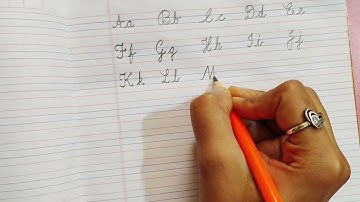 Aa Bb Cc Dd Ee
Ff Gg Hh Ii Jj
Kk Ll M